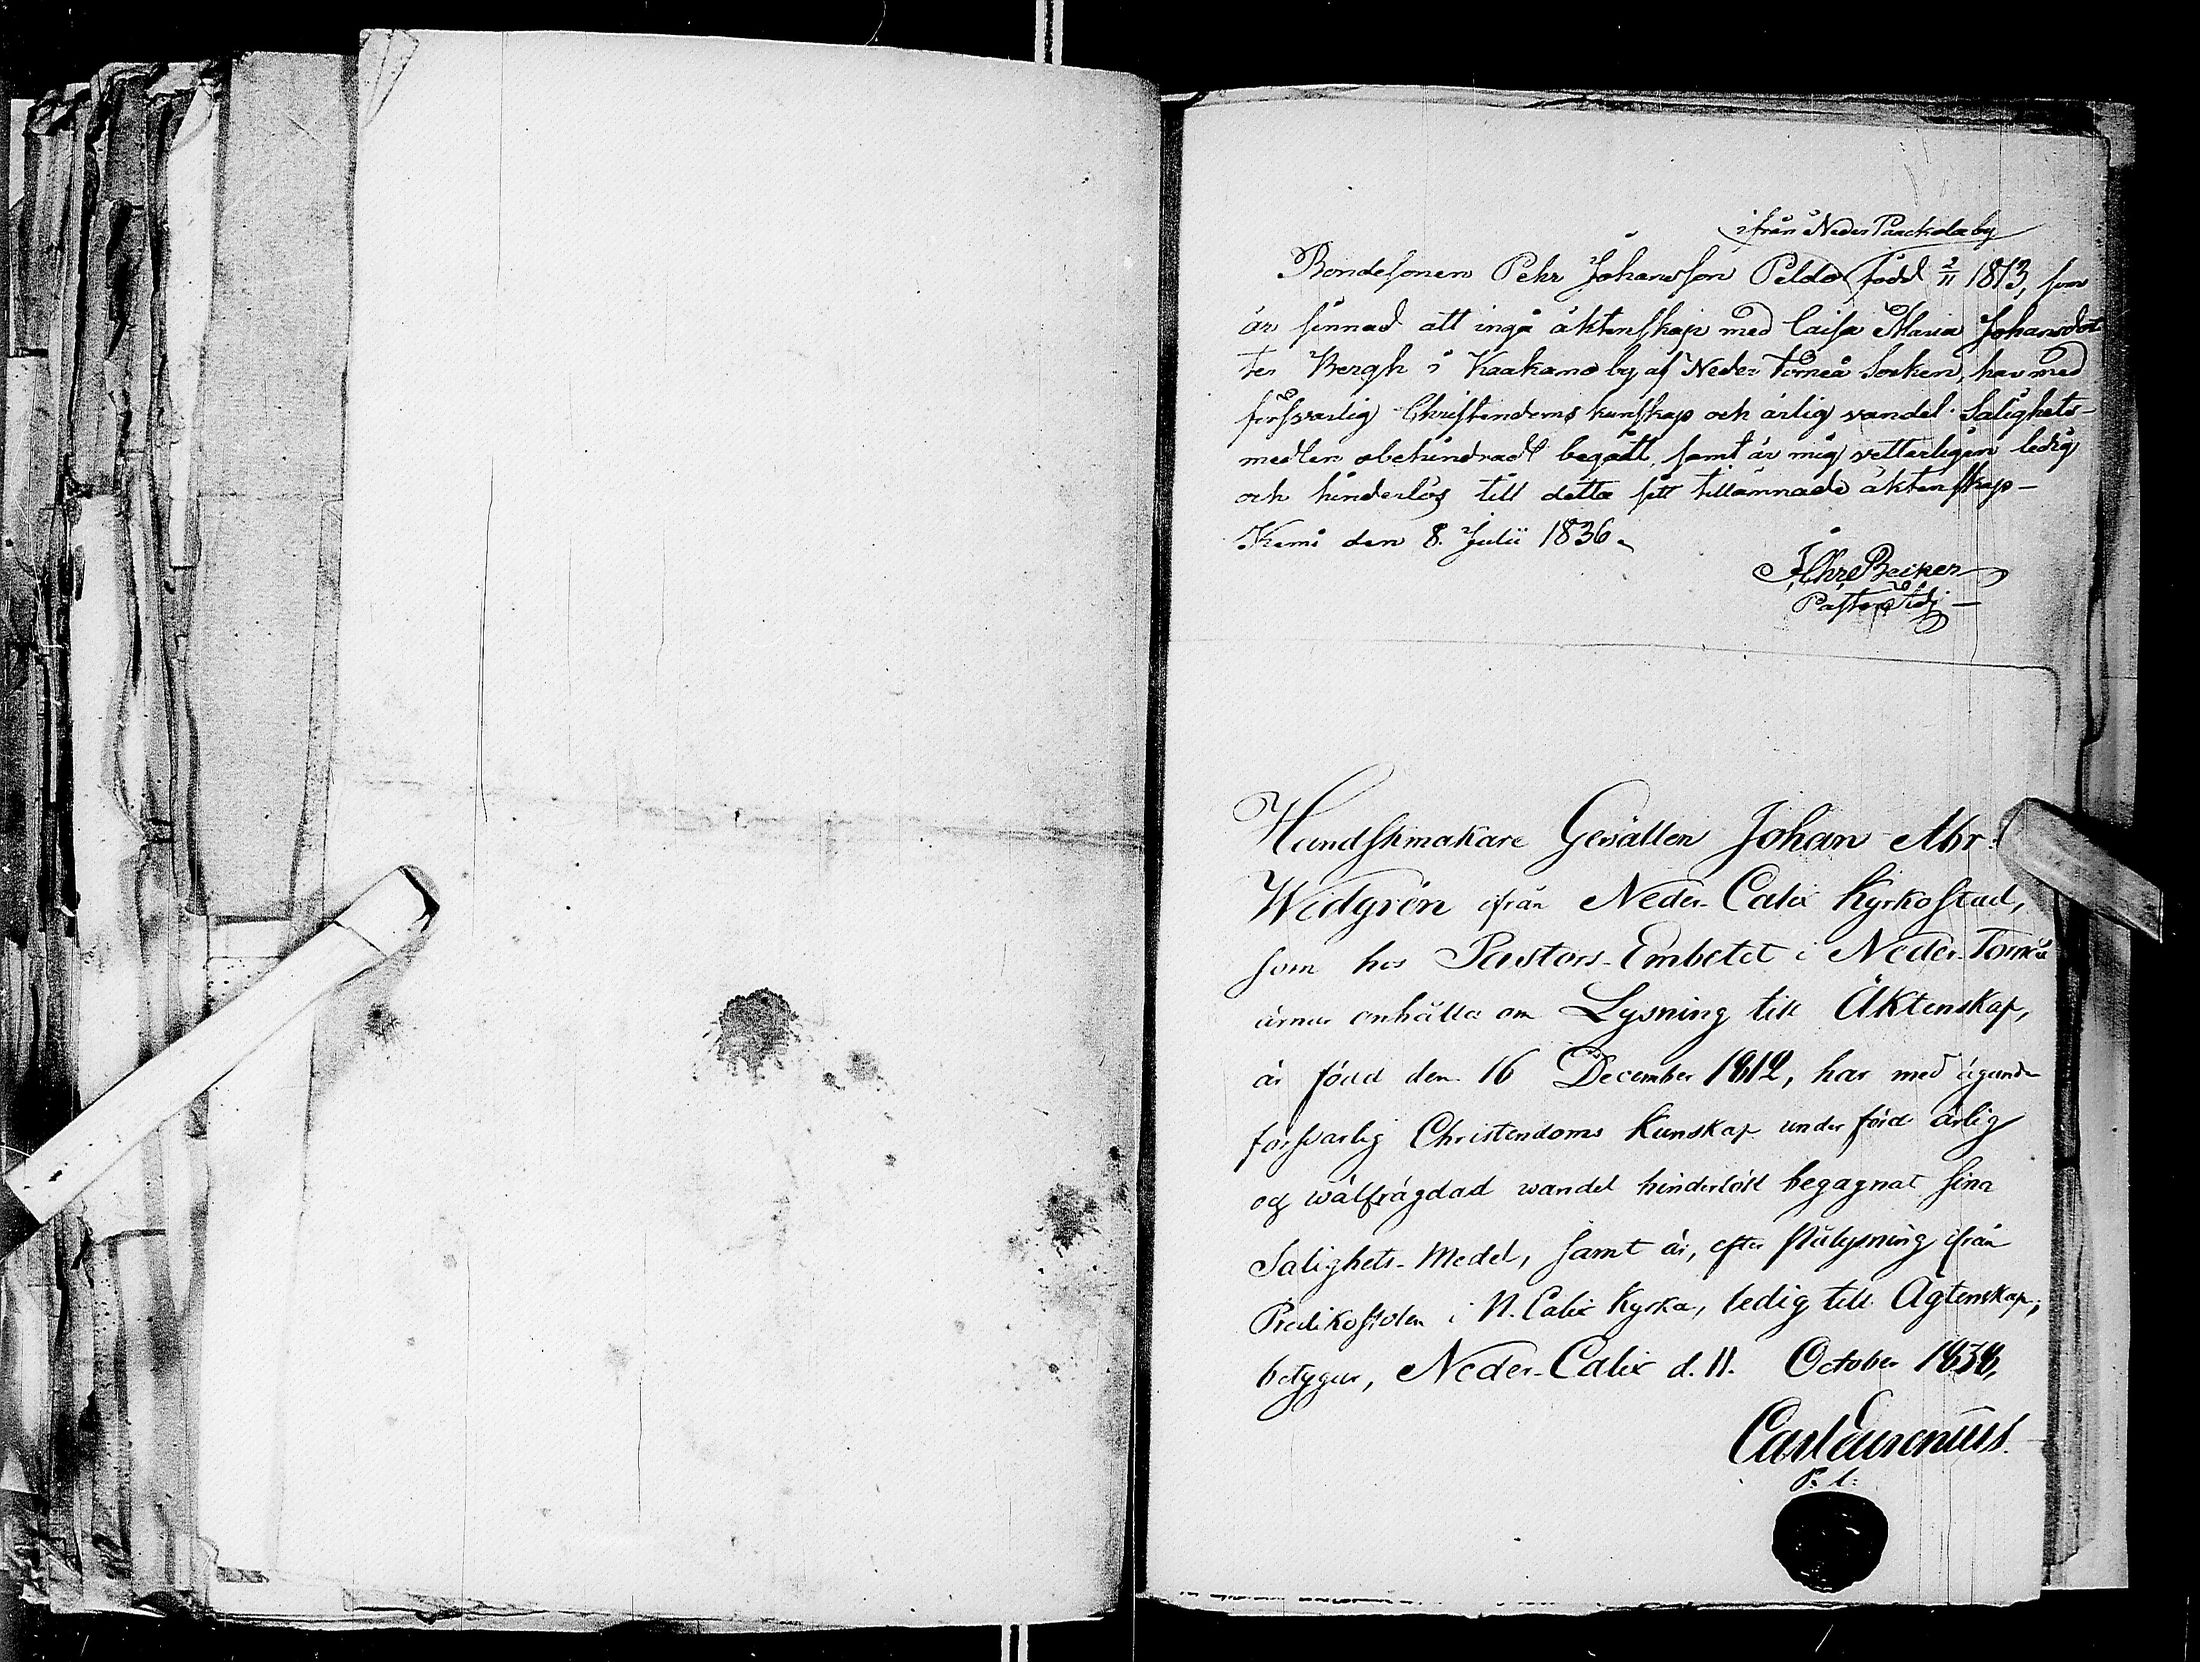 ifrån Neder Paackola by
Bondesonen Pehr Johansson Peldo född 2/11 1813, som
är sinnad att ingå äktenskap med Caisa Maria Johansdot
ter Bergh i Kaakamo by af Neder Torneå Socken, har med
försvarlig Christendoms kunskap och ärlig vandel Salighets-
medlen obehindradt begått, samt är mig vetterligen ledig
och hinderlös till detta sitt tillämnade äktenskap –
Kemi den 8. Julii 1836.
Pastors Adj
Handskmakare Gesällen Johan Abr:
Widgrén ifrån Neder-Calix Kyrkostad,
som hos Pastors-Embetet i Neder-Torneå
ärnar anhålla om Lysning till Äktenskap,
är född den 16 December 1812, har med ägande
försvarlig Christendoms Kunskap under förd ärlig
og wälfrägdad wandel hinderlöst begagnat sina
Salighets-Medel, samt är, efter pålysning ifrån
Predikostolen i N. Calix Kyrka, ledig till Ägtenskap;
betygar, Neder-Calix d. 11. October 1838,
Carl Eurenius.
P. l: